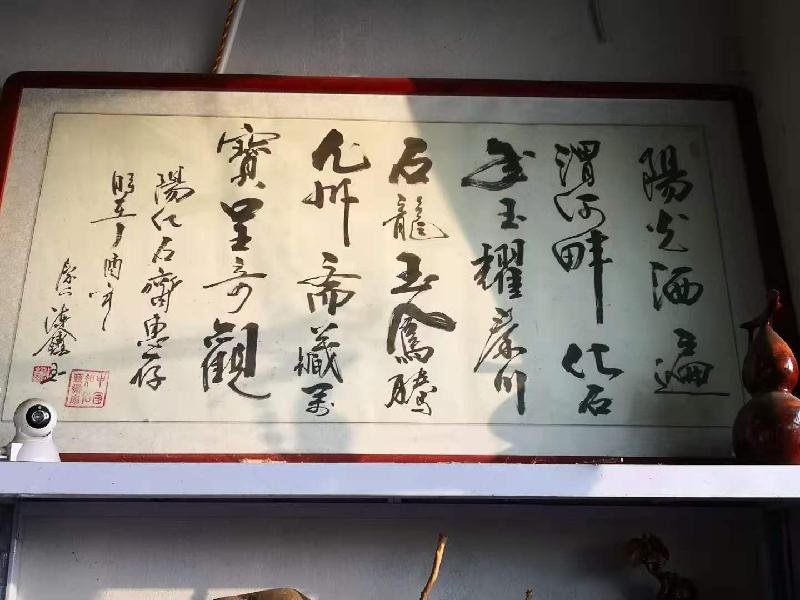 陽光洒遍
渭河畔化石
金玉耀秦川
石龍玉鳳騰
九州斋藏萬
寶呈奇觀
陽化石齋惠存
時在丁酉年